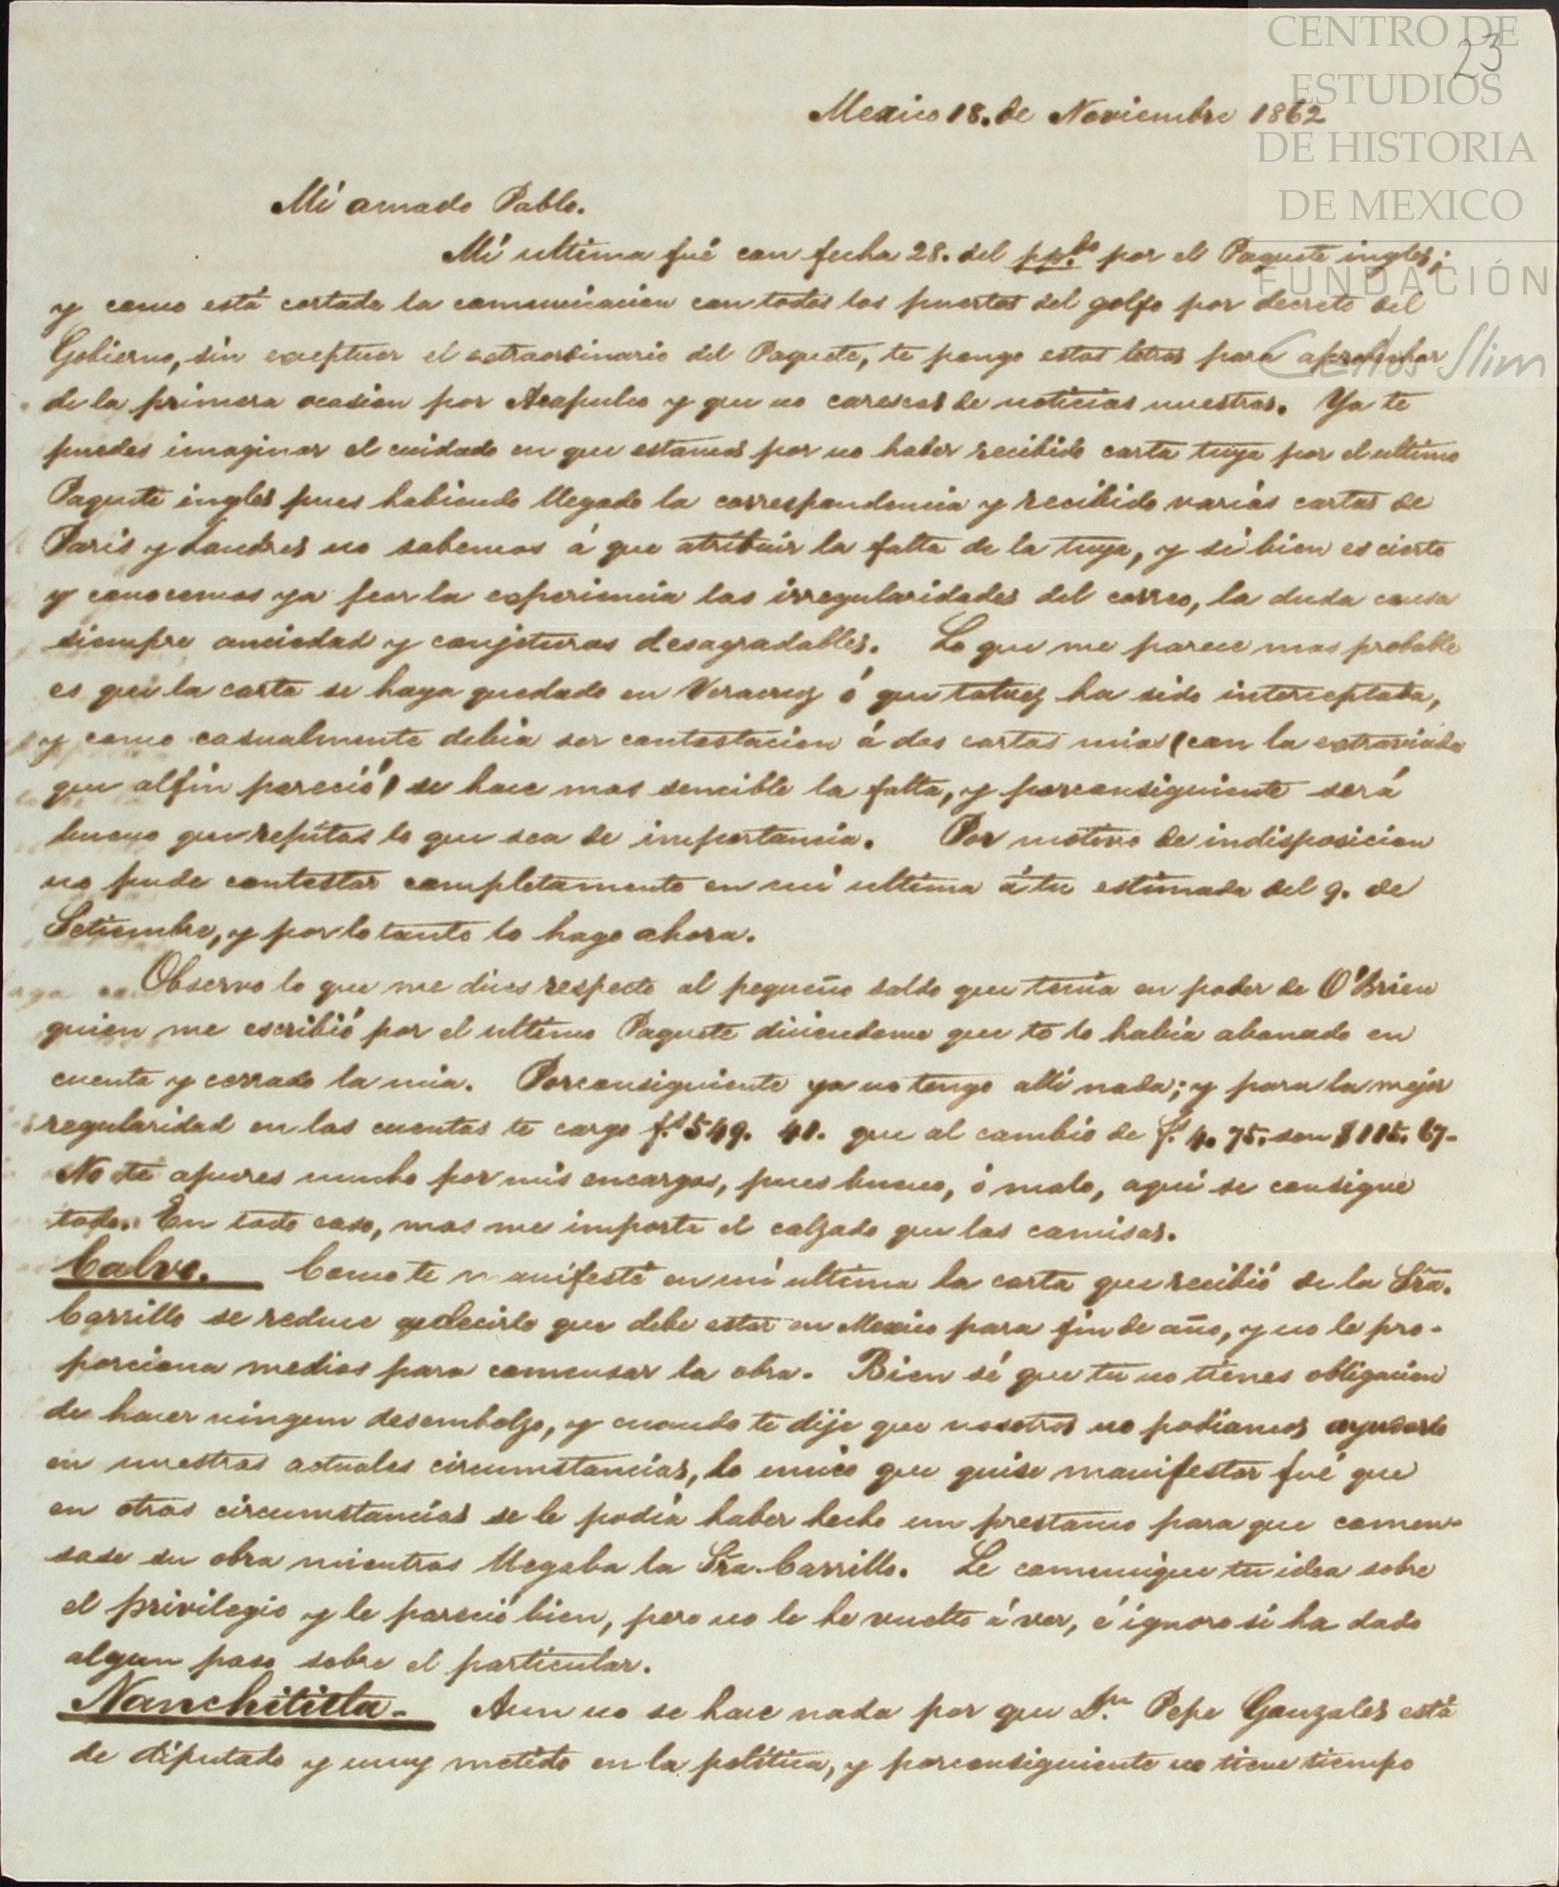 CENTRO DE
ESTUDIOS
DE HISTORIA
DE MEXICO
FUNDACIÓN
Carlos Slim
23
Mexico 18. de Noviembre 1862
Mi amado Pablo.
Mi ultima fué con fecha 28. del pp.do por el Paquete ingles;
y como está cortada la comunicacion con todos los puertos del golfo por decreto del
Gobierno, sin exceptuar el extraordinario del Paquete, te pongo estas letras para aprobechar
de la primera ocasion por Acapulco y que no carescas de noticias nuestras. Ya te
puedes imaginar el cuidado en que estamos por no haber recibido carta tuya por el ultimo
Paquete ingles pues habiendo llegado la correspondencia y recibido varias cartas de
Paris y Londres no sabemos á que atribuir la falta de la tuya, y si bien es cierto
y conocemos ya por la experiencia las irregularidades del correo, la duda causa
siempre anciedad y conjeturas desagradables. Lo que me parece mas probable
es que la carta se haya quedado en Veracruz ó que talvez ha sido interceptada,
y como casualmente debia ser contestacion á dos cartas mias (con la extraviada
que alfin pareció) se hace mas sencible la falta, y porconsiguiente será
bueno que repitas lo que sea de importancia. Por motivo de indisposicion
no pude contestar completamente en mi ultima á tu estimada del 9. de
Setiembre, y por lo tanto lo hago ahora.
Observo lo que me dices respecto al pequeño saldo que tenia en poder de O'Brien
quien me escribió por el ultimo Paquete diciendome que te lo habia abonado en
cuenta y cerrado la mia. Porconsiguiente ya no tengo alli nada; y para la mejor
regularidad en las cuentas te cargo f.s 549. 41. que al cambio de f.s 4. 75. son $ 115. 67-
No te apures mucho por mis encargos, pues bueno, ó malo, aqui se consigue
todo. En todo caso, mas me importa el calzado que las camisas.
Calvo. Como te manifesté en mi ultima la carta que recibió de la Sra.
Carrillo se reduce a decirle que debe estar en Mexico para fin de año, y no le pro-
porciona medios para comensar la obra. Bien sé que tu no tienes obligacion
de hacer ningun desembolzo, y cuando te dije que nosotros no podiamos ayudarlo
en nuestras actuales circumstancias, lo unico que quise manifestar fué que
en otras circumstancias se le podia haber hecho un prestamo para que comen-
sase su obra mientras llegaba la Sra. Carrillo. Le comunique tu idea sobre
el privilegio y le pareció bien, pero no le he vuelto á ver, é ignoro si ha dado
algun paso sobre el particular.
Nanchititla- Aun no se hace nada por que D.n Pepe Gonzales está
de diputado y muy metido en la politica, y porconsiguiente no tiene tiempo